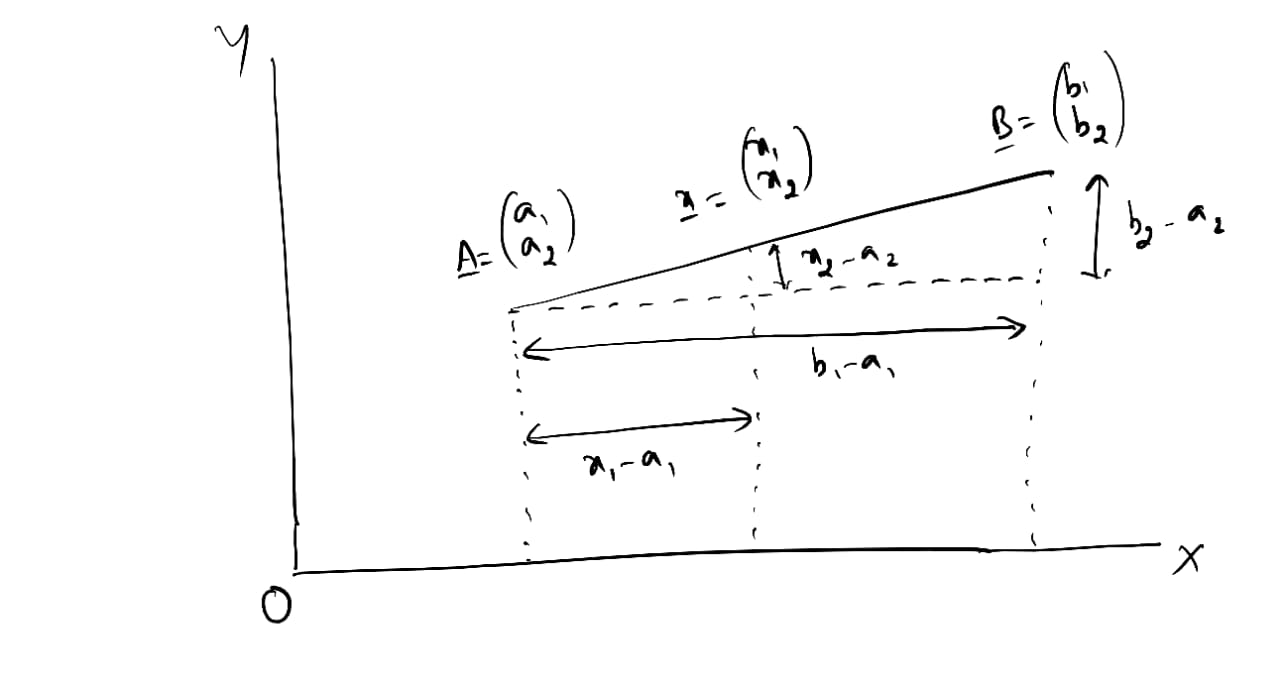 Y
B = (b₁ b₂)
x = (x₁ x₂)
A = (a₁ a₂)
b₂ - a₂
x₂ - a₂
b₁ - a₁
x₁ - a₁
X
O